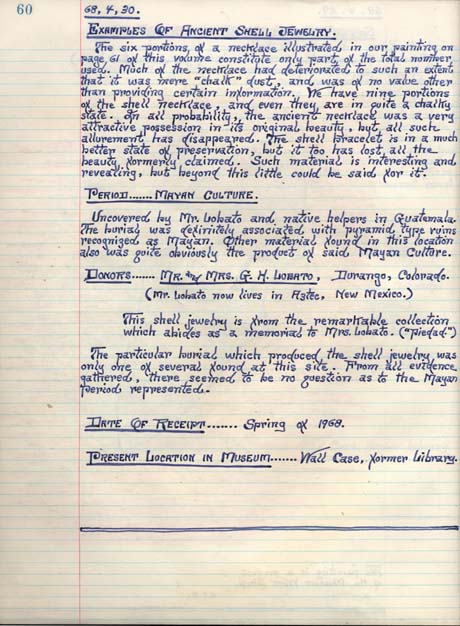 60
68.4.30.
EXAMPLES OF ANCIENT SHELL JEWELRY.
The six portions, of a necklace illustrated in our painting on
page 61 of this volume constitute only part of the total number
used. Much of the necklace had deteriorated to such an extent
that it was mere "chalk" dust, and was of no value other
than providing certain information. We have nine portions
of the shell necklace, and even they are in quite a chalky
state. In all probability, the ancient necklace was a very
attractive possession in its original beauty, but all such
allurement has disappeared. The shell bracelet is in a much
better state of preservation, but it too has lost all the
beauty formerly claimed. Such material is interesting and
revealing, but beyond this little could be said for it.
PERIOD....... MAYAN CULTURE.
Uncovered by Mr. Lobato and native helpers in Guatemala.
The burial was definitely associated with pyramid type ruins
recognized as Mayan. Other material found in this location
also was quite obviously the product of said Mayan Culture.
DONORS...... MR. and MRS. G. H. LOBATO, Durango, Colorado.
(Mr. Lobato now lives in Aztec, New Mexico.)
This shell jewelry is from the remarkable collection
which abides as a memorial to Mrs. Lobato. ("Piedad")
The particular burial which produced the shell jewelry was
only one of several found at this site. From all evidence
gathered, there seemed to be no question as to the Mayan
period represented.
DATE OF RECEIPT....... Spring of 1968.
PRESENT LOCATION IN MUSEUM....... Wall Case, former Library.